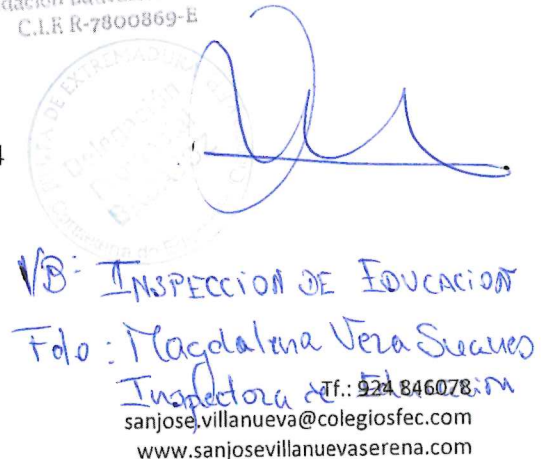 C.I.F. R-7800869-E
JUNTA DE EXTREMADURA
4
VºBº INSPECCION DE EDUCACION
Fdo: Magdalena Vera Suanes
Inspectora de Educación
Tf.: 924 846078
sanjose.villanueva@colegiosfec.com
www.sanjosevillanuevaserena.com